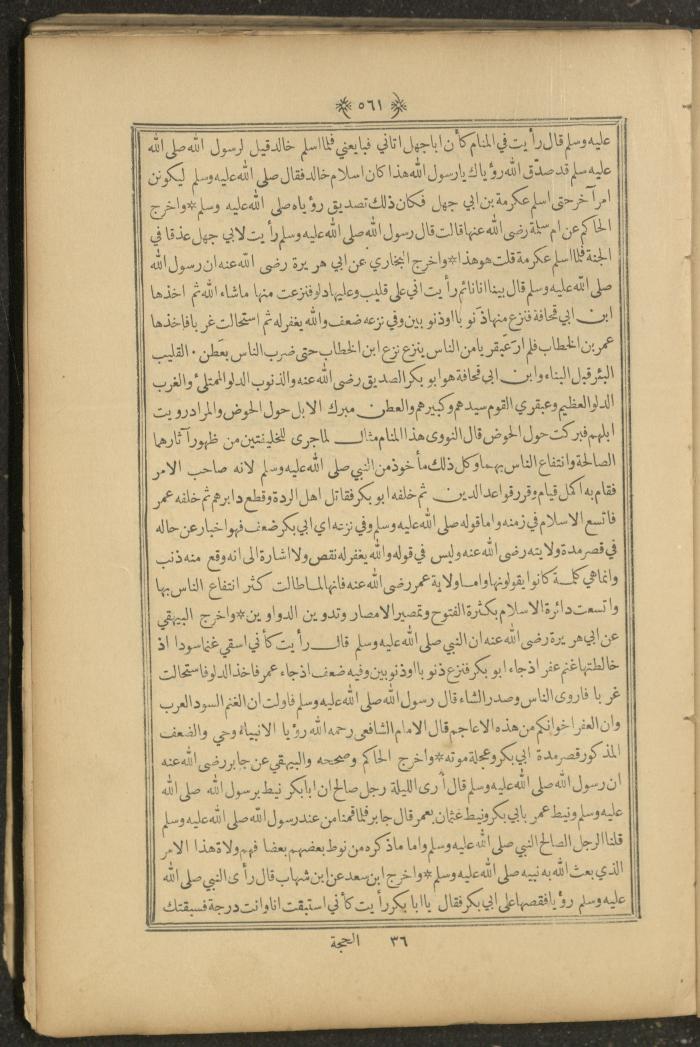 ﴿ ٥٦١ ﴾
عليه وسلم قال رأيت في المنام كأن اباجهل اتاني فبايعني فلما اسلم خالد قيل لرسول الله صلى الله
عليه وسلم قد صدّق الله رؤياك يارسول الله هذا كان اسلام خالد فقال صلى الله عليه وسلم ليكونن
امرآخر حتى اسلم عكرمة بن ابي جهل فكان ذلك تصديق رؤياه صلى الله عليه وسلم * واخرج
الحاكم عن ام سلمة رضى الله عنها قالت قال رسول الله صلى الله عليه وسلم رأيت لابي جهل عذقا في
الجنة فلما اسلم عكرمة قلت هو هذا * واخرج البخاري عن ابي هريرة رضى الله عنه ان رسول الله
صلى الله عليه وسلم قال بينا انا نائم رأيت اني على قليب وعليها دلو فنزعت منها ماشاء الله ثم اخذها
ابن ابي قحافة فنزع منها ذنو با اوذنو بين وفي نزعه ضعف والله يغفر له ثم استحالت غر با فاخذها
عمر بن الخطاب فلم ار عبقر يا من الناس ينزع نزع ابن الخطاب حتى ضرب الناس بعطن . القليب
البئر قبل البناء وابن ابي قحافة هو ابو بكر الصديق رضى الله عنه والذنوب الدلو الممتلئ والغرب
الدلو العظيم وعبقري القوم سيدهم وكبيرهم والعطن مبرك الابل حول الحوض والمراد رويت
ابلهم فبركت حول الحوض قال النووي هذا المنام مثال لما جرى للخليفتين من ظهور آثارهما
الصالحة وانتفاع الناس بهما وكل ذلك مأخوذ من النبي صلى الله عليه وسلم لانه صاحب الامر
فقام به اكمل قيام وقرر قواعد الدين ثم خلفه ابو بكر فقاتل اهل الردة وقطع دابرهم ثم خلفه عمر
فاتسع الاسلام في زمنه واما قوله صلى الله عليه وسلم وفي نزعه اي ابي بكر ضعف فهو اخبار عن حاله
في قصر مدة ولايته رضى الله عنه وليس في قوله والله يغفر له نقص ولا اشارة الى انه وقع منه ذنب
وانما هي كلمة كانوا يقولونها واما ولاية عمر رضى الله عنه فانها لما طالت كثر انتفاع الناس بها
واتسعت دائرة الاسلام بكثرة الفتوح وتمصير الامصار وتدوين الدواوين * واخرج البيهقي
عن ابي هريرة رضى الله عنه ان النبي صلى الله عليه وسلم قال رأيت كأني اسقي غنما سودا اذ
خالطتها غنم عفر اذ جاء ابو بكر فنزع ذنو با اوذنو بين وفيه ضعف اذ جاء عمر فاخذ الدلو فاستحالت
غر با فاروى الناس وصدر الشاء قال رسول الله صلى الله عليه وسلم فاولت ان الغنم السود العرب
وان العفر اخوانكم من هذه الاعاجم قال الامام الشافعى رحمه الله رؤيا الانبياء وحي والضعف
المذكور قصر مدة ابي بكر وعجلة موته * واخرج الحاكم وصححه والبيهقي عن جابر رضى الله عنه
ان رسول الله صلى الله عليه وسلم قال أرى الليلة رجل صالح ان ابابكر نيط برسول الله صلى الله
عليه وسلم ونيط عمر بابي بكر ونيط عثمان بعمر قال جابر فلما قمنا من عند رسول الله صلى الله عليه وسلم
قلنا الرجل الصالح النبي صلى الله عليه وسلم واما ماذكره من نوط بعضهم بعضا فهم ولاة هذا الامر
الذي بعث الله به نبيه صلى الله عليه وسلم * واخرج ابن سعد عن ابن شهاب قال رأى النبي صلى الله
عليه وسلم رؤيا فقصها على ابي بكر فقال يا ابا بكر رأيت كأني استبقت انا وانت درجة فسبقتك
٣٦ الحجة